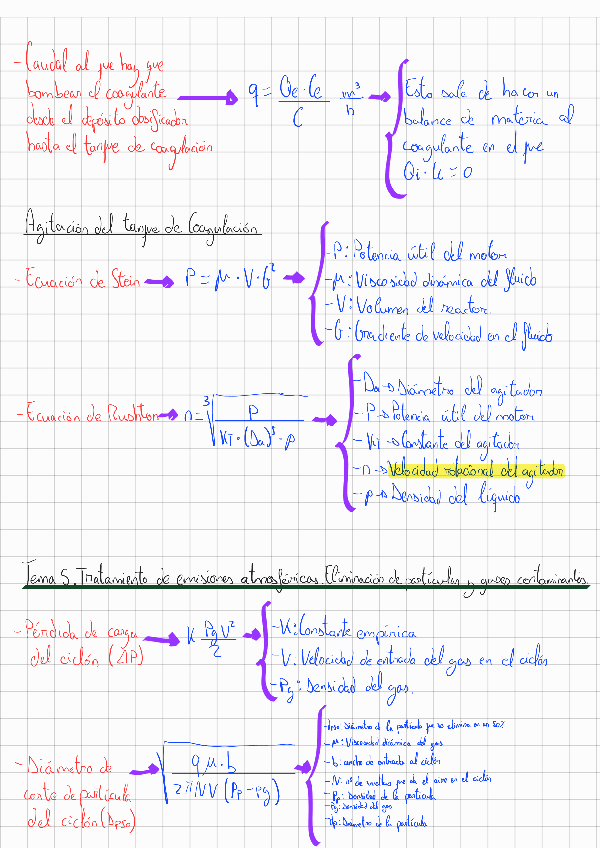 - Caudal al que hay que
bombear el coagulante
desde el depósito dosificador
hasta el tanque de coagulación
q = Qc · Cc / C m³/h
Esto sale de hacer un
balance de materia al
coagulante en el que
Qi · Ci = 0
Agitación del tanque de Coagulación
- Ecuación de Stein
P = μ · V · G²
- P: Potencia útil del motor
- μ: Viscosidad dinámica del fluido
- V: Volumen del reactor
- G: Gradiente de velocidad en el fluido
- Ecuación de Rushton
n = ³√(P / KT · (Da)⁵ · ρ)
- Da → Diámetro del agitador
- P → Potencia útil del motor
- KT → Constante del agitador
- n → Velocidad rotacional del agitador
- ρ → Densidad del líquido
Tema 5. Tratamiento de emisiones atmosféricas. Eliminación de partículas y gases contaminantes
- Pérdida de carga
del ciclón (ΔP)
K ρg V² / 2
- K: Constante empírica
- V: Velocidad de entrada del gas en el ciclón
- ρg: Densidad del gas.
- Diámetro de
corte de partícula
del ciclón (Dp50)
√(9 μ · b / 2 π N V (ρp - ρg))
Diámetro de la partícula que se elimina en un 50%
- μ: Viscosidad dinámica del gas
- b: ancho de entrada al ciclón
- N: nº de vueltas que da el aire en el ciclón
- ρp: Densidad de la partícula
- ρg: Densidad del gas
- Dp: Diámetro de la partícula